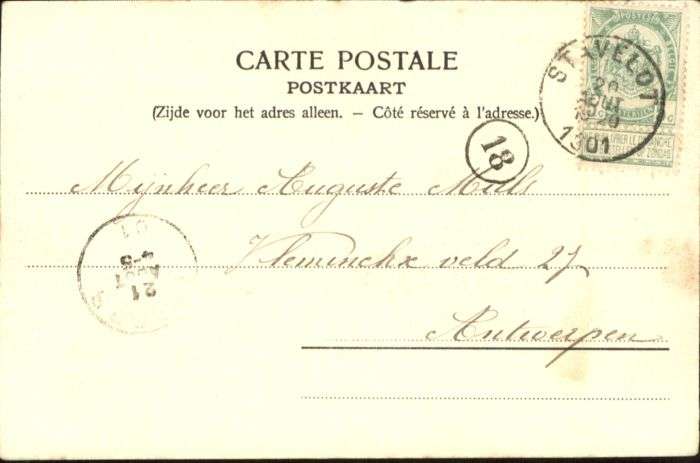 CARTE POSTALE
POSTKAART
(Zijde voor het adres alleen. – Côté réservé à l'adresse.)
STAVELOT
20
AOUT
1901
18
Mijnheer Auguste Mills
Vleminckx veld 27
Antwerpen
21
AOUT
4-S
01
POSTES